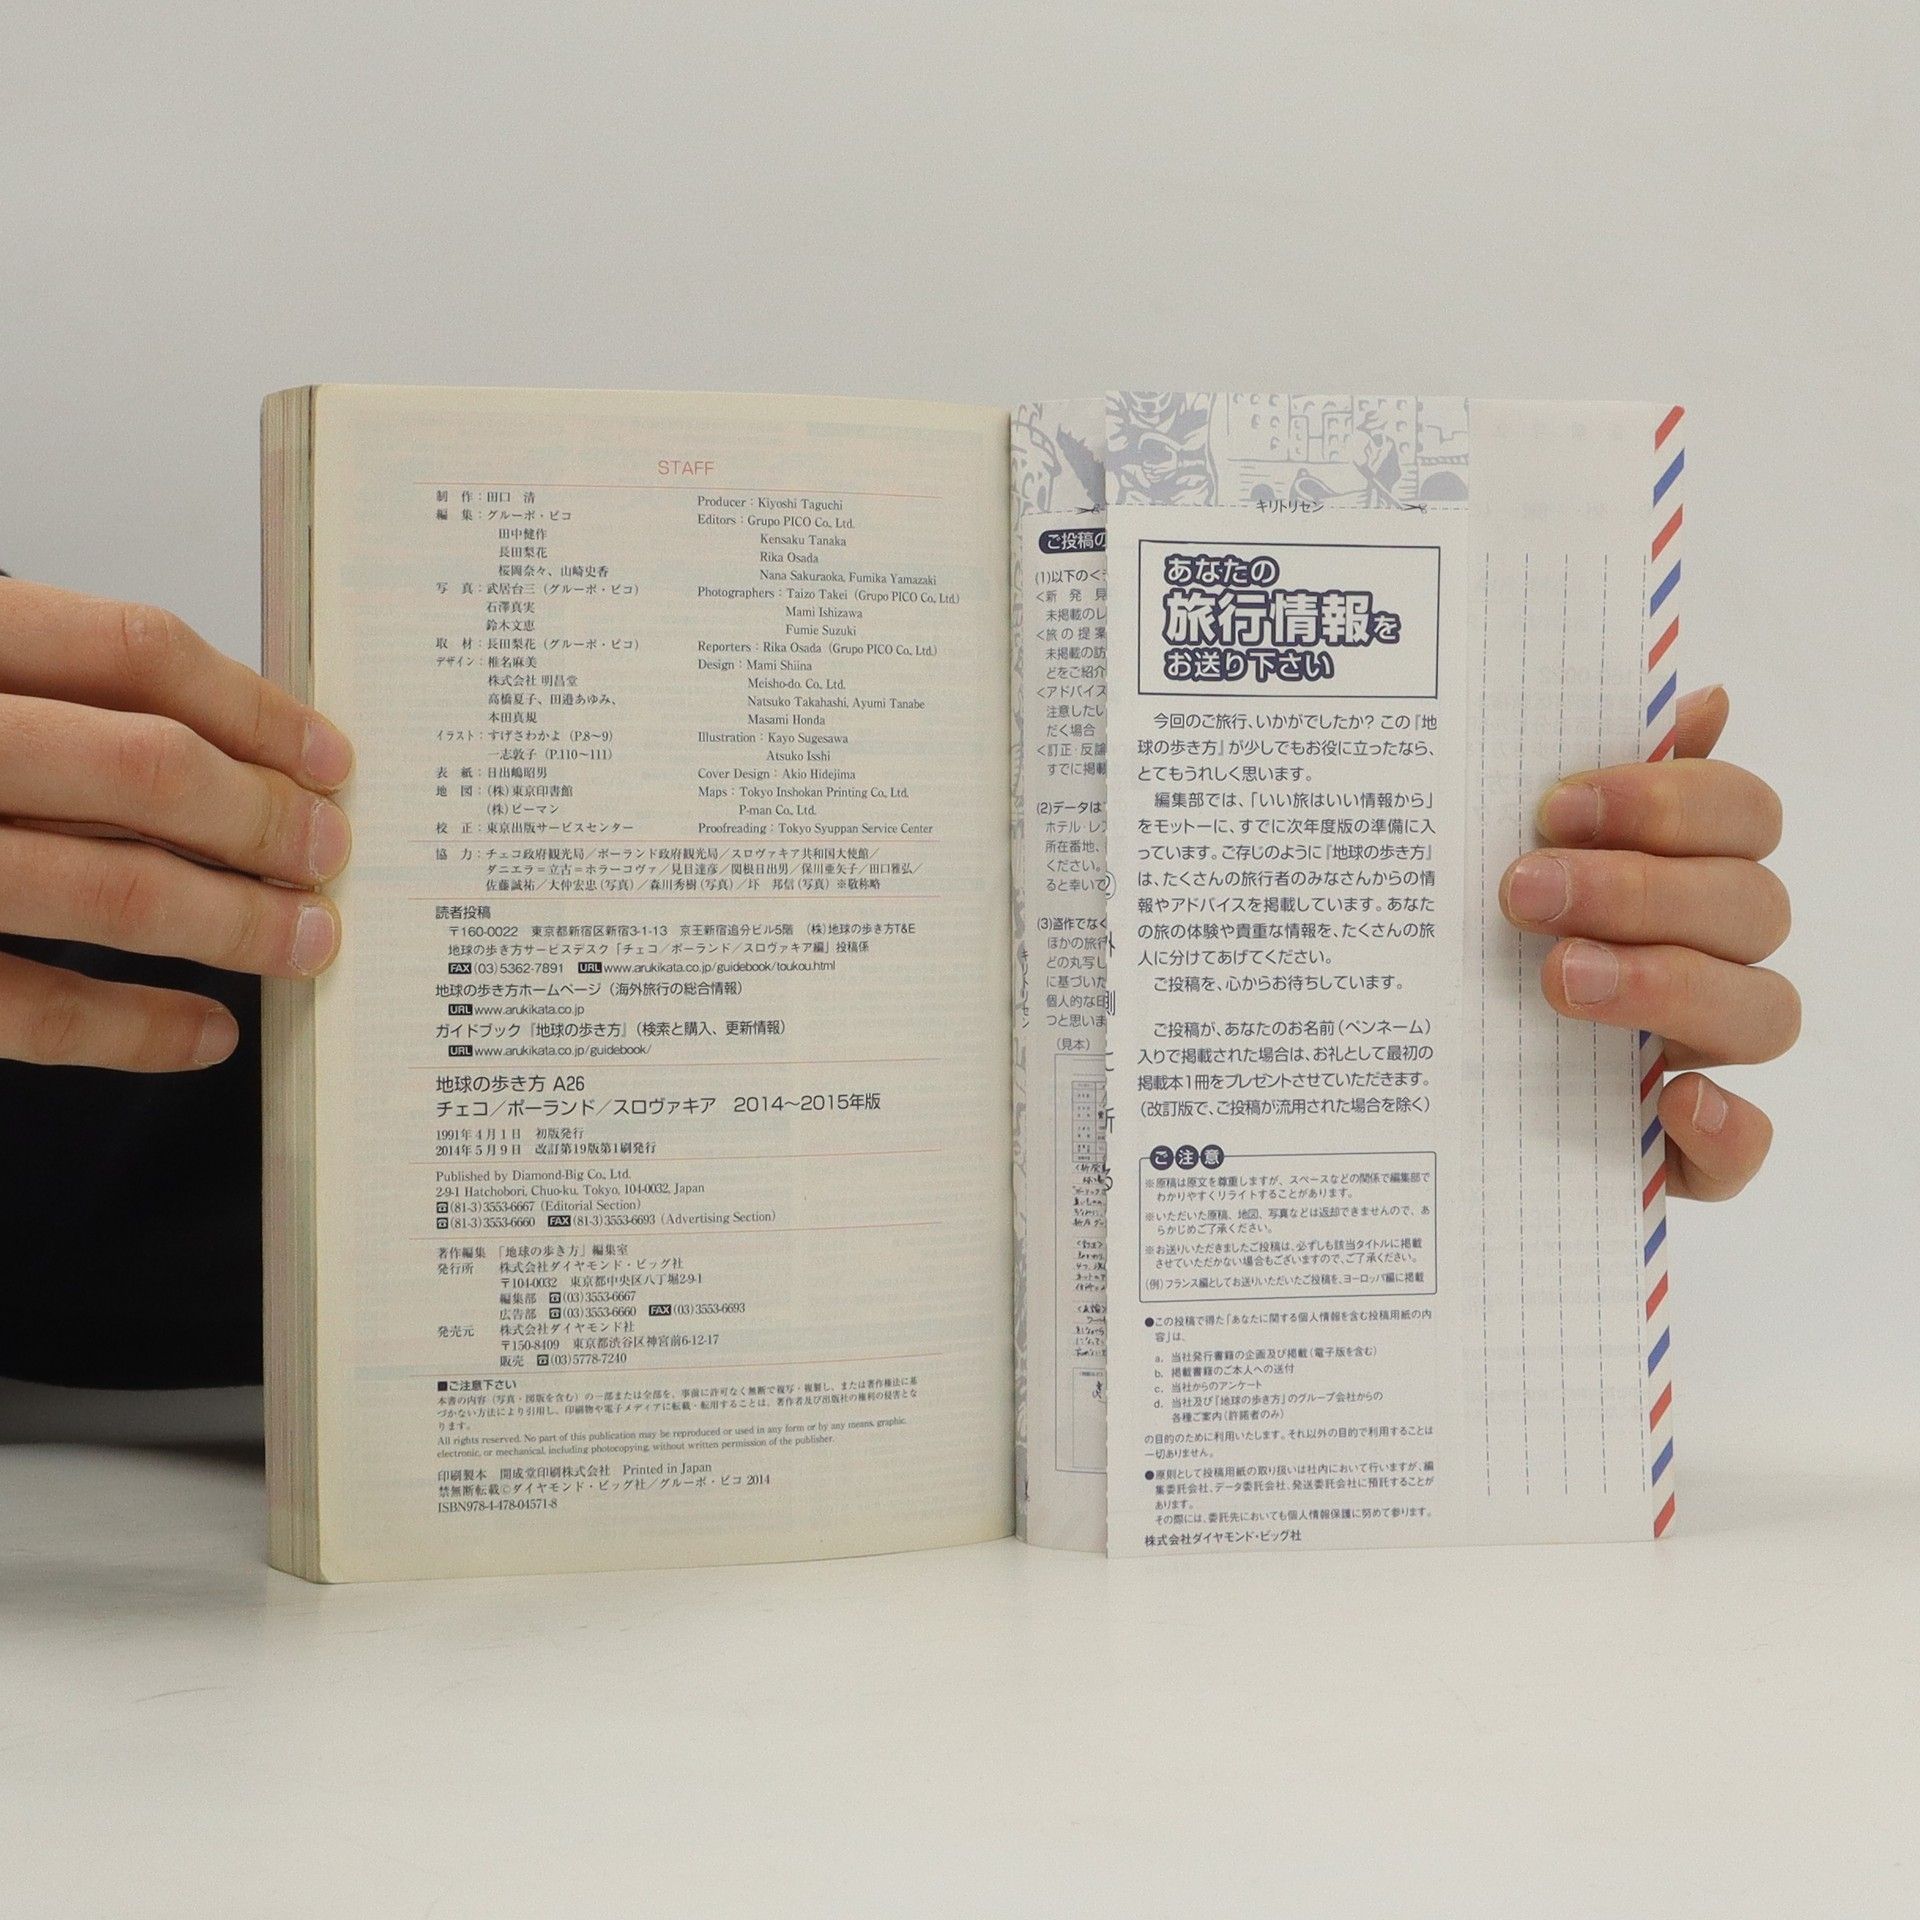 STAFF
制　作：田口　清　Producer：Kiyoshi Taguchi
編　集：グルーポ・ピコ　Editors：Grupo PICO Co., Ltd.
田中健作　Kensaku Tanaka
長田梨花　Rika Osada
桜岡奈々、山崎史香　Nana Sakuraoka, Fumika Yamazaki
写　真：武居台三（グルーポ・ピコ）　Photographers：Taizo Takei（Grupo PICO Co., Ltd.）
石澤真実　Mami Ishizawa
鈴木文恵　Fumie Suzuki
取　材：長田梨花（グルーポ・ピコ）　Reporters：Rika Osada（Grupo PICO Co., Ltd.）
デザイン：椎名麻美　Design：Mami Shiina
株式会社 明昌堂　Meisho-do. Co., Ltd.
高橋夏子、田邉あゆみ、　Natsuko Takahashi, Ayumi Tanabe
本田真規　Masami Honda
イラスト：すげさわかよ（P.8～9）　Illustration：Kayo Sugesawa
一志敦子（P.110～111）　Atsuko Isshi
表　紙：日出嶋昭男　Cover Design：Akio Hidejima
地　図：（株）東京印書館　Maps：Tokyo Inshokan Printing Co., Ltd.
（株）ピーマン　P-man Co., Ltd.
校　正：東京出版サービスセンター　Proofreading：Tokyo Syuppan Service Center
協　力：チェコ政府観光局／ポーランド政府観光局／スロヴァキア共和国大使館／
ダニエラ＝立古＝ホラーコヴァ／見目達彦／関根日出男／保川亜矢子／田口雅弘／
佐藤誠祐／大仲宏忠（写真）／森川秀樹（写真）／圷　邦信（写真）※敬称略
読者投稿
〒160-0022　東京都新宿区新宿3-1-13　京王新宿追分ビル5階　（株）地球の歩き方T&E
地球の歩き方サービスデスク「チェコ／ポーランド／スロヴァキア編」投稿係
FAX（03）5362-7891　URL www.arukikata.co.jp/guidebook/toukou.html
地球の歩き方ホームページ（海外旅行の総合情報）
URL www.arukikata.co.jp
ガイドブック『地球の歩き方』（検索と購入、更新情報）
URL www.arukikata.co.jp/guidebook/
地球の歩き方 A26
チェコ／ポーランド／スロヴァキア　2014～2015年版
1991年 4 月 1 日　初版発行
2014年 5 月 9 日　改訂第19版第1刷発行
Published by Diamond-Big Co., Ltd.
2-9-1 Hatchobori, Chuo-ku, Tokyo, 104-0032, Japan
☎(81-3) 3553-6667 (Editorial Section)
☎(81-3) 3553-6660　FAX (81-3) 3553-6693 (Advertising Section)
著作編集　「地球の歩き方」編集室
発行所　株式会社ダイヤモンド・ビッグ社
〒104-0032　東京都中央区八丁堀2-9-1
編集部　☎(03)3553-6667
広告部　☎(03)3553-6660　FAX (03)3553-6693
発売元　株式会社ダイヤモンド社
〒150-8409　東京都渋谷区神宮前6-12-17
販売　☎(03)5778-7240
■ご注意下さい
本書の内容（写真・図版を含む）の一部または全部を、事前に許可なく無断で複写・複製し、または著作権法に基
づかない方法により引用し、印刷物や電子メディアに転載・転用することは、著作者及び出版社の権利の侵害とな
ります。
All rights reserved. No part of this publication may be reproduced or used in any form or by any means, graphic,
electronic, or mechanical, including photocopying, without written permission of the publisher.
印刷製本　開成堂印刷株式会社　Printed in Japan
禁無断転載©ダイヤモンド・ビッグ社／グルーポ・ピコ 2014
ISBN978-4-478-04571-8
ご投稿の
(1)以下の<
<新 発 見
未掲載のレ
<旅 の 提 案
未掲載の訪
どをご紹介
<アドバイス
注意したい
だく場合
<訂正・反論
すでに掲載
(2)データは
ホテル・レス
所在番地、
ください。
ると幸いで
(3)盗作でなく
ほかの旅行
どの丸写し
に基づいた
個人的な印
つと思いま
（見本）
キリトリセン
キリトリセン
あなたの
旅行情報を
お送り下さい
今回のご旅行、いかがでしたか？ この『地
球の歩き方』が少しでもお役に立ったなら、
とてもうれしく思います。
編集部では、「いい旅はいい情報から」
をモットーに、すでに次年度版の準備に入
っています。ご存じのように『地球の歩き方』
は、たくさんの旅行者のみなさんからの情
報やアドバイスを掲載しています。あなた
の旅の体験や貴重な情報を、たくさんの旅
人に分けてあげてください。
ご投稿を、心からお待ちしています。
ご投稿が、あなたのお名前（ペンネーム）
入りで掲載された場合は、お礼として最初の
掲載本1冊をプレゼントさせていただきます。
（改訂版で、ご投稿が流用された場合を除く）
ご注意
※原稿は原文を尊重しますが、スペースなどの関係で編集部で
わかりやすくリライトすることがあります。
※いただいた原稿、地図、写真などは返却できませんので、あ
らかじめご了承ください。
※お送りいただきましたご投稿は、必ずしも該当タイトルに掲載
させていただかない場合もございますので、ご了承ください。
（例）フランス編としてお送りいただいたご投稿を、ヨーロッパ編に掲載
●この投稿で得た「あなたに関する個人情報を含む投稿用紙の内
容」は、
a. 当社発行書籍の企画及び掲載（電子版を含む）
b. 掲載書籍のご本人への送付
c. 当社からのアンケート
d. 当社及び「地球の歩き方」のグループ会社からの
各種ご案内（許諾者のみ）
の目的のために利用いたします。それ以外の目的で利用することは
一切ありません。
●原則として投稿用紙の取り扱いは社内において行いますが、編
集委託会社、データ委託会社、発送委託会社に預託することが
あります。
その際には、委託先においても個人情報保護に努めて参ります。
株式会社ダイヤモンド・ビッグ社